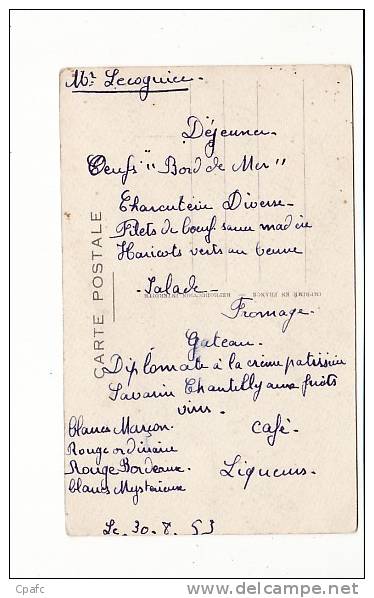 Mr Lecoquice.
Déjeuner
Oeufs "Bord de Mer"
Charcuterie Diverse.
Filets de boeuf sauce madère
Haricots verts au beurre
Salade.
Fromage.
Gateau.
Diplomate à la crème patissière
Savarin Chantilly aux fruits
vins.
blancs Marçon.
Rouge ordinaire
Rouge Bordeaux.
blancs Mystérieux
Café.
Liqueurs.
Le. 30. 8. 53
CARTE POSTALE
IMPRIMÉ EN FRANCE — REPRODUCTION INTERDITE
Cpafc
delcampe.net